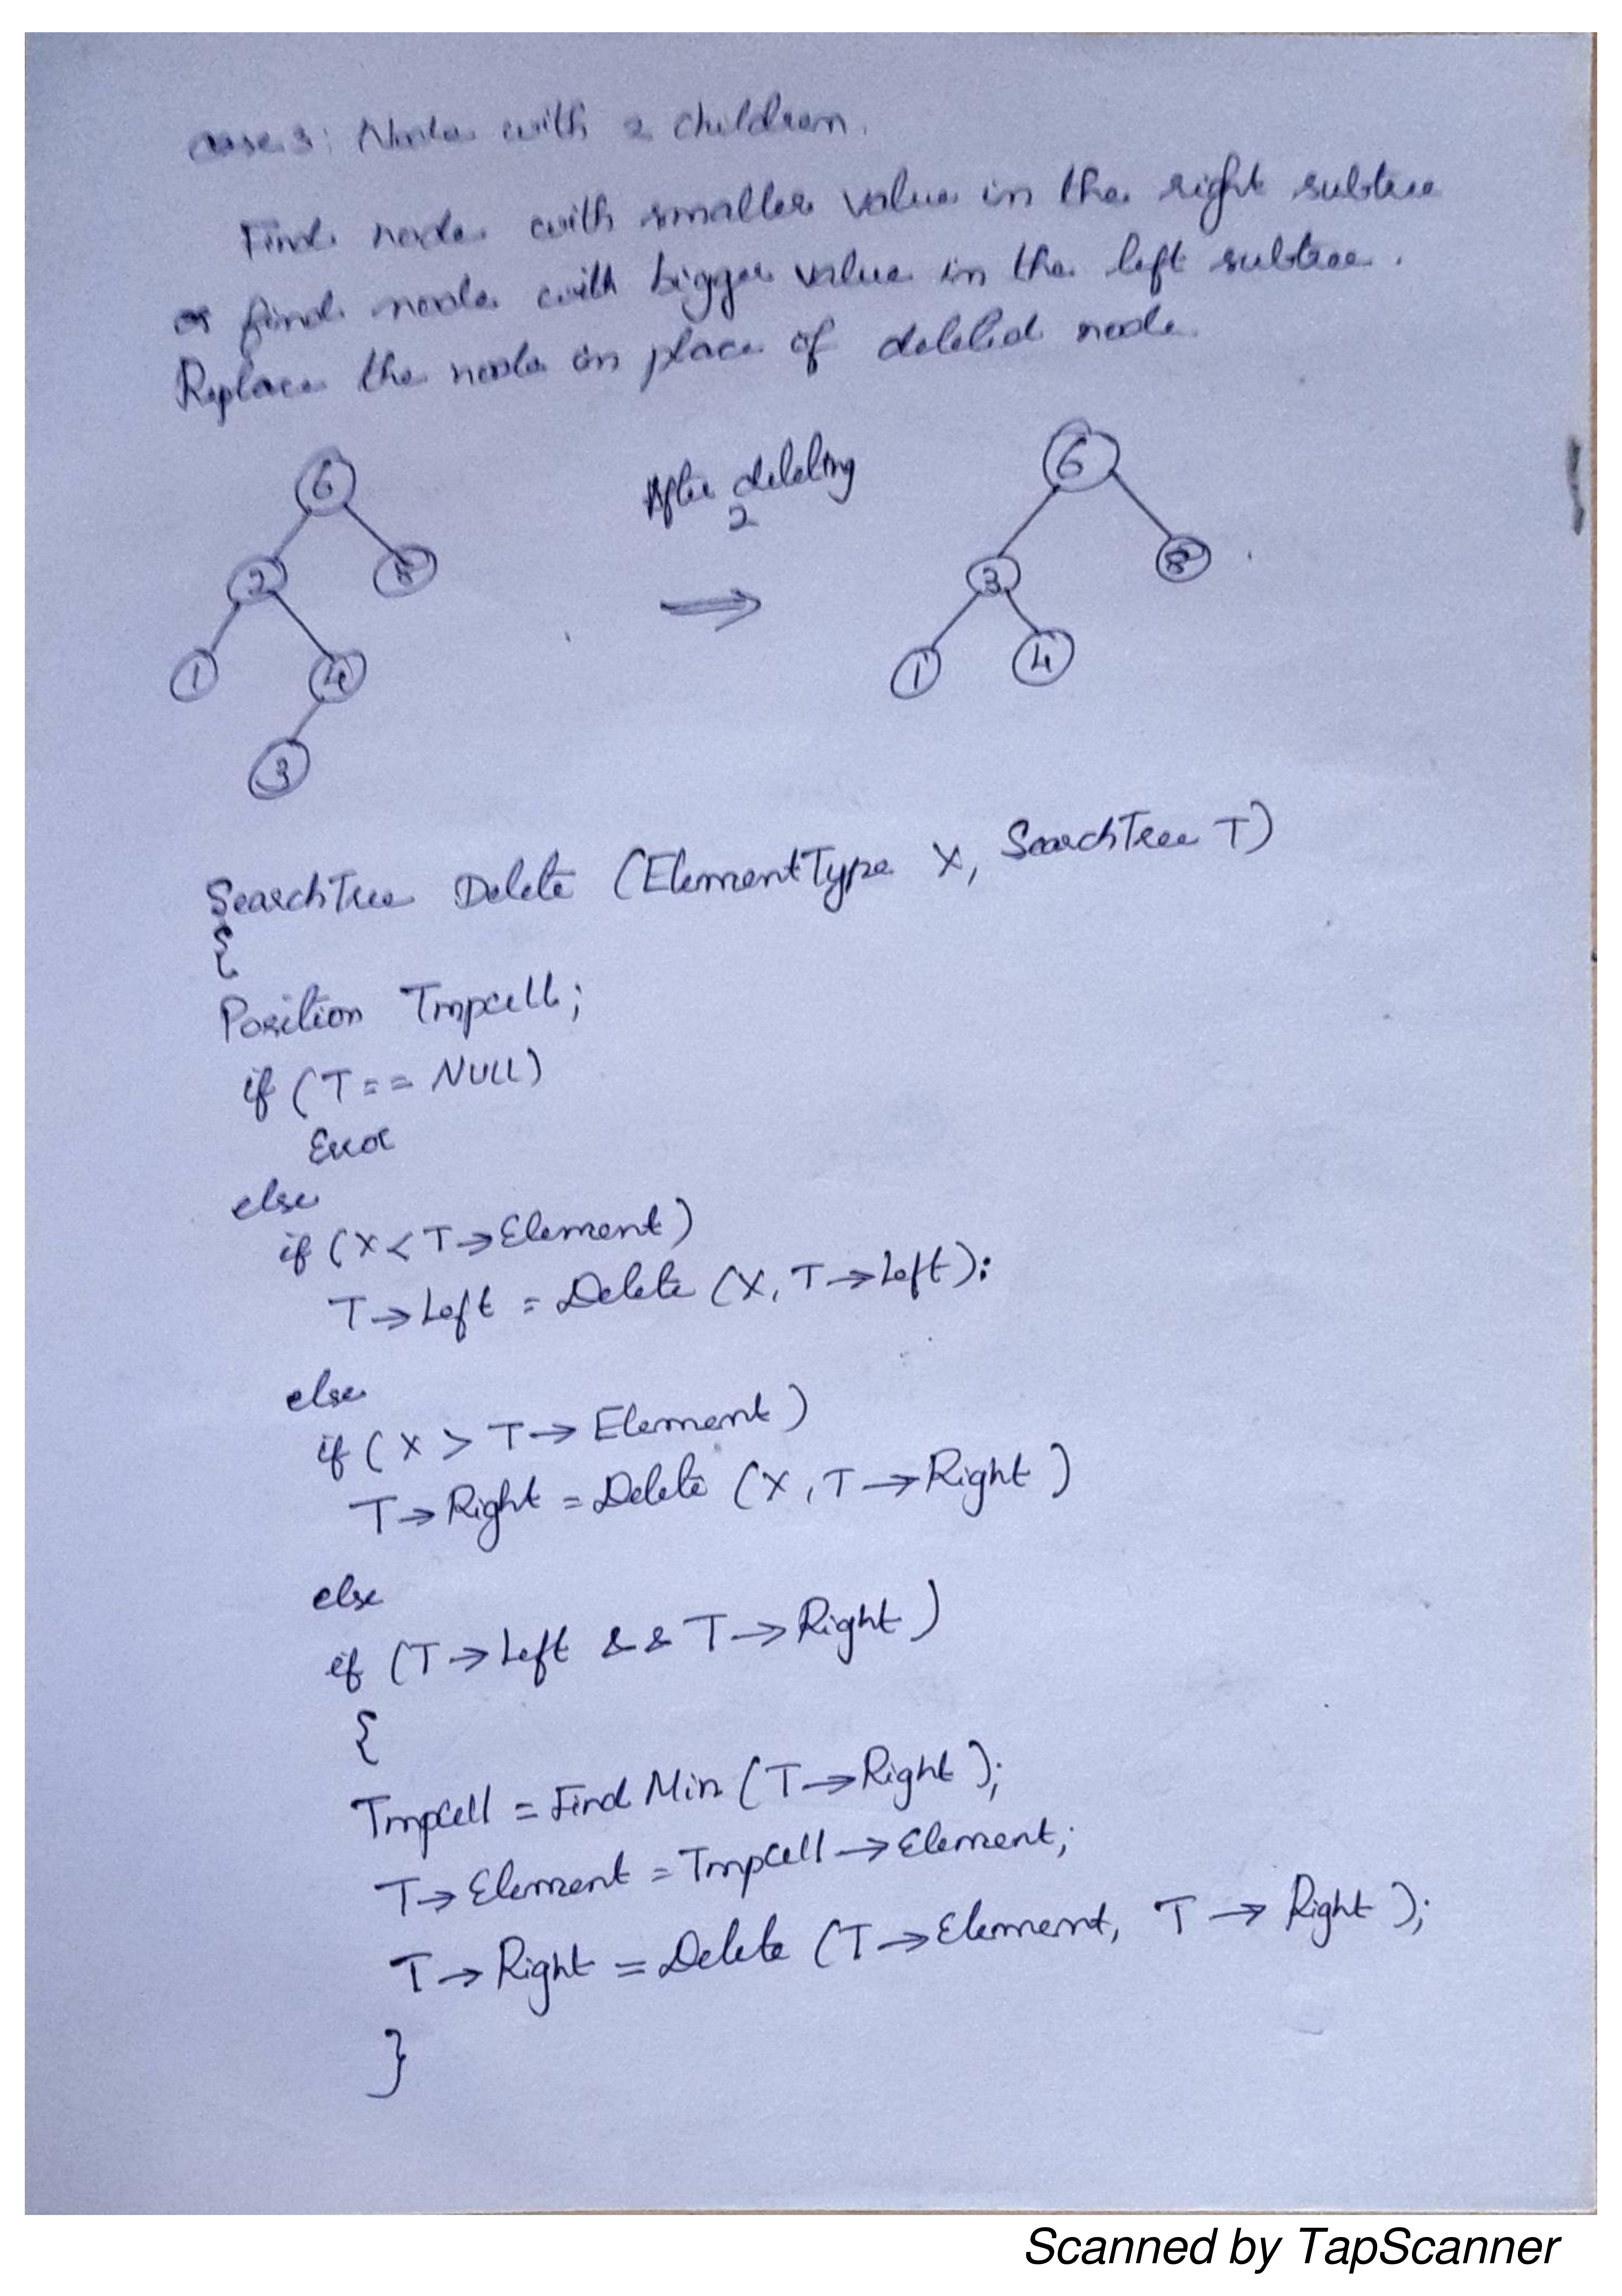 case 3: Node with 2 children.
Find node with smaller value in the right subtree
or find node with bigger value in the left subtree.
Replace the node in place of deleted node.
6
2
8
1
4
3
After deleting
2
⇒
6
3
8
1
4
SearchTree Delete (ElementType X, SearchTree T)
{
Position Tmpcell;
if (T == NULL)
Error
else
if (X < T → Element)
T → Left = Delete (X, T → Left);
else
if (X > T → Element)
T → Right = Delete (X, T → Right)
else
if (T → Left && T → Right)
{
TmpCell = Find Min (T → Right);
T → Element = TmpCell → Element;
T → Right = Delete (T → Element, T → Right);
}
Scanned by TapScanner